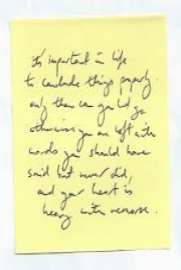 it's important in life
to conclude things properly.
only then can you let go
otherwise you are left with
words you should have
said but never did,
and your heart is
heavy with remorse.